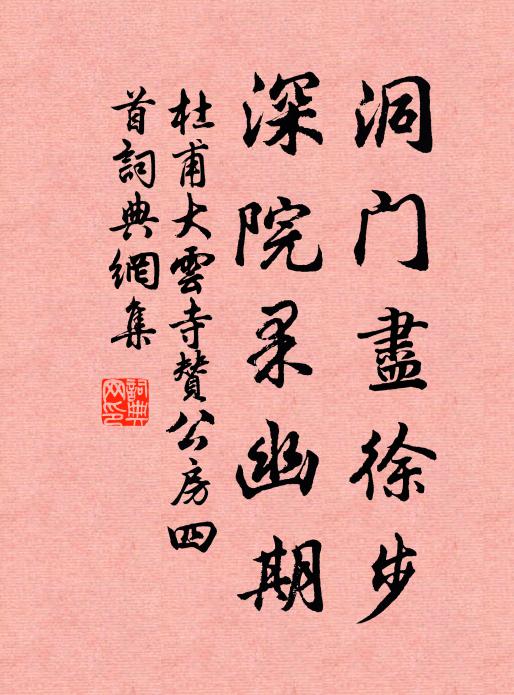 洞门盡徐步
深院果幽期
杜甫大雲寺贊公房四
首詞典網集
詞典网印